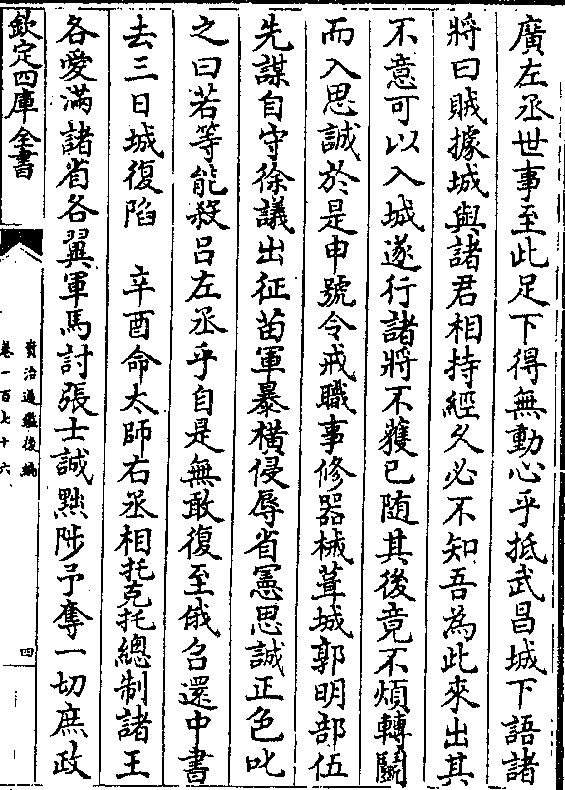 廣左丞世事至此足下得無動心乎抵武昌城下語諸
將曰賊據城與諸君相持經久必不知吾為此來出其
不意可以入城遂行諸將不獲已随其後竟不煩轉鬬
而入思誠於是申號令戒職事修器械葺城郭明部伍
先謀自守徐議出征苗軍暴横侵辱省憲思誠正色叱
之曰若等能殺吕左丞乎自是無敢復至俄召還中書
去三日城復陷　辛酉命太師右丞相托克托總制諸王
各愛滿諸省各翼軍馬討張士誠黜陟予奪一切庶政
欽定四庫全書
資治通鑑後編
卷一百七十六
四